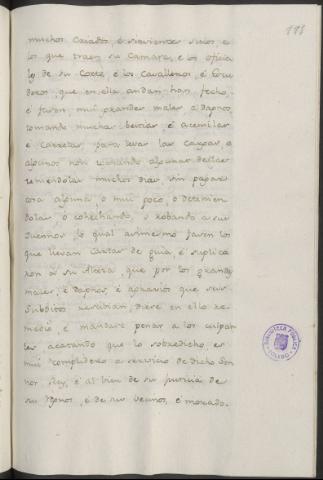 111
muchos Criados, é sirvientes suios, e
los que traen su Camara, é los oficia
les de su Corte, é los Cavalleros, é Escu
deros, que en ella andan, han fecho,
é facen, mui grandes males, e daños,
tomando muchas bestias, é acemilas
é carretas para levar las cargas, a
algunos non tornando algunas dellas
teniendolas muchos dias sin pagar
cosa alguna, o mui poco, o detenien
dolas, o cohechando, o robando a sus
Dueños, lo qual asimesmo facen los
que llevan Cartas de guia, é suplica
ron a su Alteza, que por los grandes
males, é daños, é agravios que sus
Subditos rescibian, diese en ello re
medio, é mandase penar a los culpan
tes acatando que lo sobredicho, es
mui complidero a servicio de dicho Señ
nor Rey, é al bien de su justicia de
su Reynos, é de sus vecinos, é moradores.
BIBLIOTECA PUBLICA
TOLEDO